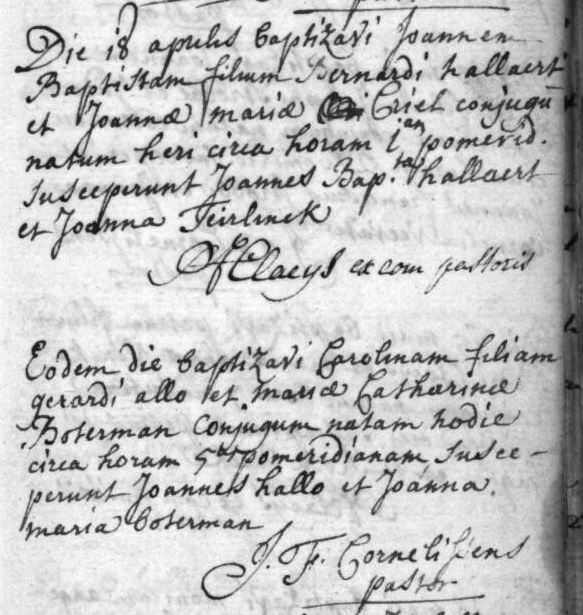 Die 18 aprilis baptizavi Joannem
Baptistam filium Bernardi hallaert
et Joannæ mariæ Criel conjugū
natum heri circa horam 1am pomerid.
susceperunt Joannes Bap.ta hallaert
et Joanna Teirlinck
Claeys ex com pastoris
Eodem die baptizavi Carolinam filiam
gerardi allo et mariæ Catharinæ
Boterman conjugum natam hodie
circa horam 5tam pomeridianam susce-
perunt Joannes hallo et Joanna
maria boterman
J. F. Cornelissens
pastor